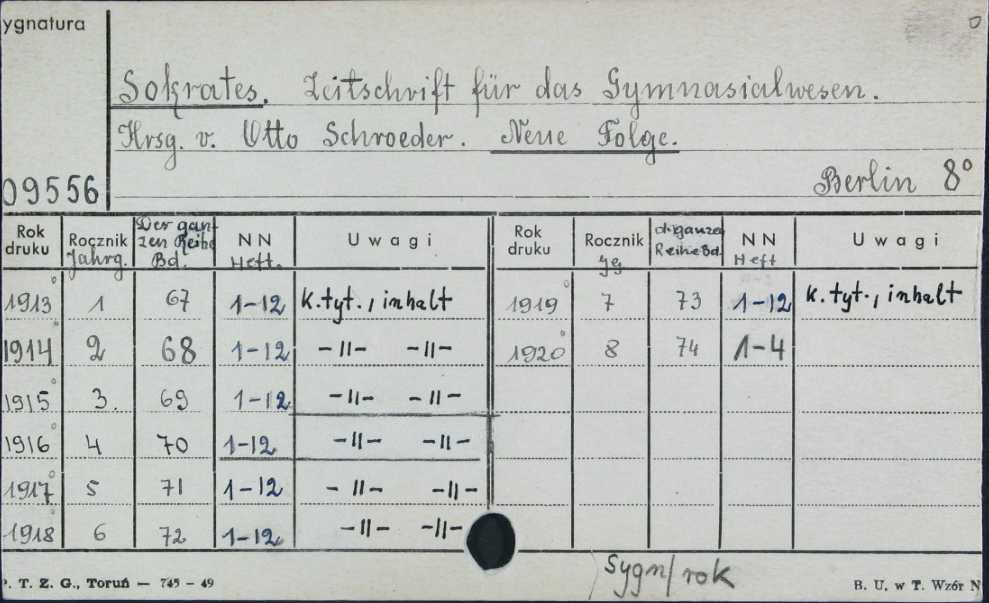 ygnatura
Sokrates. Zeitschrift für das Gymnasialwesen.
Hrsg. v. Otto Schroeder. Neue Folge.
09556
Berlin 8°
Rok druku Rocznik Jahrg. Der ganzen Reihe Bd. NN Heft. Uwagi Rok druku Rocznik Jg d. ganze Reihe Bd. NN Heft Uwagi
1913° 1 67 1-12 k. tyt., inhalt 1919° 7 73 1-12 k. tyt., inhalt
1914° 2 68 1-12 -||- -||- 1920° 8 74 1-4
1915° 3. 69 1-12 -||- -||-
1916° 4 70 1-12 -||- -||-
1917° 5 71 1-12 -||- -||-
1918° 6 72 1-12 -||- -||-
Sygn/rok
P. T. Z. G., Toruń — 745 – 49 B. U. w T. Wzór N